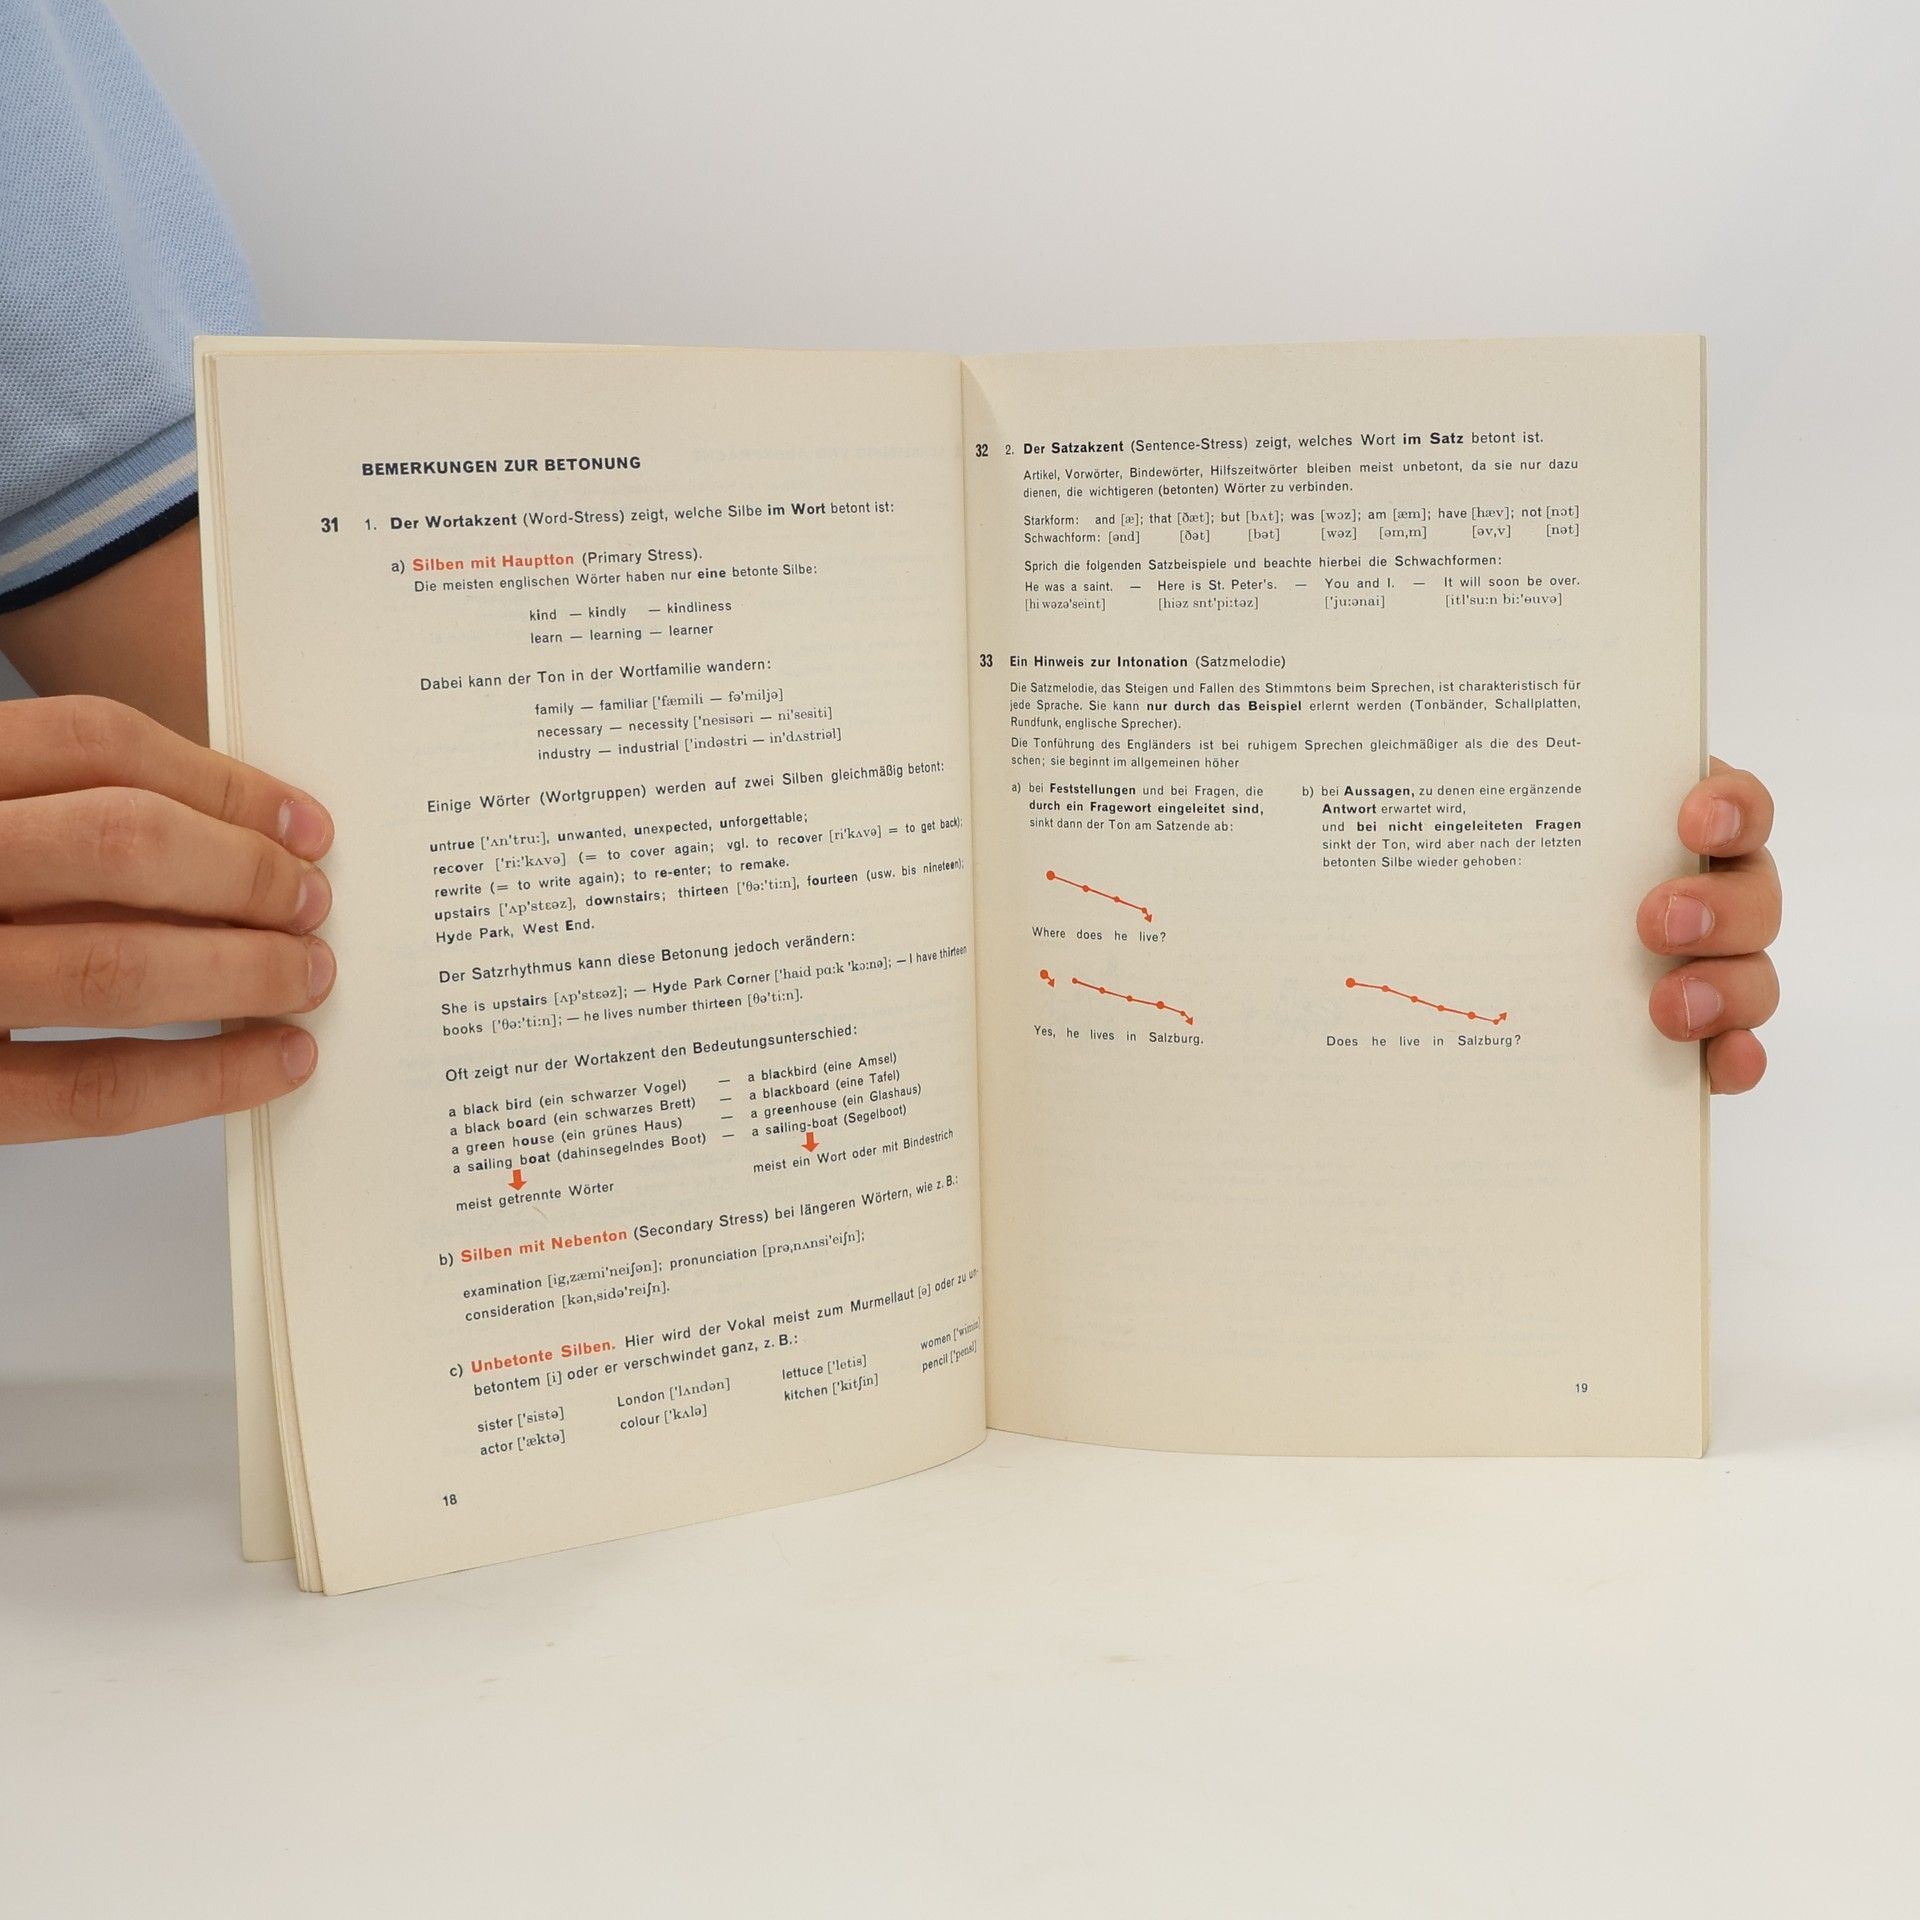 BEMERKUNGEN ZUR BETONUNG
31 1. Der Wortakzent (Word-Stress) zeigt, welche Silbe im Wort betont ist:
a) Silben mit Hauptton (Primary Stress).
Die meisten englischen Wörter haben nur eine betonte Silbe:
kind — kindly — kindliness
learn — learning — learner
Dabei kann der Ton in der Wortfamilie wandern:
family — familiar ['fæmili — fə'miljə]
necessary — necessity ['nesisəri — ni'sesiti]
industry — industrial ['indəstri — in'dʌstriəl]
Einige Wörter (Wortgruppen) werden auf zwei Silben gleichmäßig betont:
untrue ['ʌn'tru:], unwanted, unexpected, unforgettable;
recover ['ri:'kʌvə] (= to cover again; vgl. to recover [ri'kʌvə] = to get back);
rewrite (= to write again); to re-enter; to remake.
upstairs ['ʌp'stɛəz], downstairs; thirteen ['θə:'ti:n], fourteen (usw. bis nineteen);
Hyde Park, West End.
Der Satzrhythmus kann diese Betonung jedoch verändern:
She is upstairs [ʌp'stɛəz]; — Hyde Park Corner ['haid pɑ:k 'kɔ:nə]; — I have thirteen
books ['θə:'ti:n]; — he lives number thirteen [θə'ti:n].
Oft zeigt nur der Wortakzent den Bedeutungsunterschied:
a black bird (ein schwarzer Vogel) — a blackbird (eine Amsel)
a black board (ein schwarzes Brett) — a blackboard (eine Tafel)
a green house (ein grünes Haus) — a greenhouse (ein Glashaus)
a sailing boat (dahinsegelndes Boot) — a sailing-boat (Segelboot)
meist getrennte Wörter meist ein Wort oder mit Bindestrich
b) Silben mit Nebenton (Secondary Stress) bei längeren Wörtern, wie z. B.:
examination [ig,zæmi'neiʃən]; pronunciation [prə,nʌnsi'eiʃn];
consideration [kən,sidə'reiʃn].
c) Unbetonte Silben. Hier wird der Vokal meist zum Murmellaut [ə] oder zu un-
betontem [i] oder er verschwindet ganz, z. B.:
sister ['sistə] London ['lʌndən] lettuce ['letis] women ['wimin]
actor ['æktə] colour ['kʌlə] kitchen ['kitʃin] pencil ['pensl]
18
32 2. Der Satzakzent (Sentence-Stress) zeigt, welches Wort im Satz betont ist.
Artikel, Vorwörter, Bindewörter, Hilfszeitwörter bleiben meist unbetont, da sie nur dazu
dienen, die wichtigeren (betonten) Wörter zu verbinden.
Starkform: and [æ]; that [ðæt]; but [bʌt]; was [wɔz]; am [æm]; have [hæv]; not [nɔt]
Schwachform: [ənd] [ðət] [bət] [wəz] [əm,m] [əv,v] [nət]
Sprich die folgenden Satzbeispiele und beachte hierbei die Schwachformen:
He was a saint. — Here is St. Peter's. — You and I. — It will soon be over.
[hi wəzə'seint] [hiəz snt'pi:təz] ['ju:ənai] [itl'su:n bi:'ɵuvə]
33 Ein Hinweis zur Intonation (Satzmelodie)
Die Satzmelodie, das Steigen und Fallen des Stimmtons beim Sprechen, ist charakteristisch für
jede Sprache. Sie kann nur durch das Beispiel erlernt werden (Tonbänder, Schallplatten,
Rundfunk, englische Sprecher).
Die Tonführung des Engländers ist bei ruhigem Sprechen gleichmäßiger als die des Deut-
schen; sie beginnt im allgemeinen höher
a) bei Feststellungen und bei Fragen, die
durch ein Fragewort eingeleitet sind,
sinkt dann der Ton am Satzende ab:
Where does he live?
Yes, he lives in Salzburg.
b) bei Aussagen, zu denen eine ergänzende
Antwort erwartet wird,
und bei nicht eingeleiteten Fragen
sinkt der Ton, wird aber nach der letzten
betonten Silbe wieder gehoben:
Does he live in Salzburg?
19